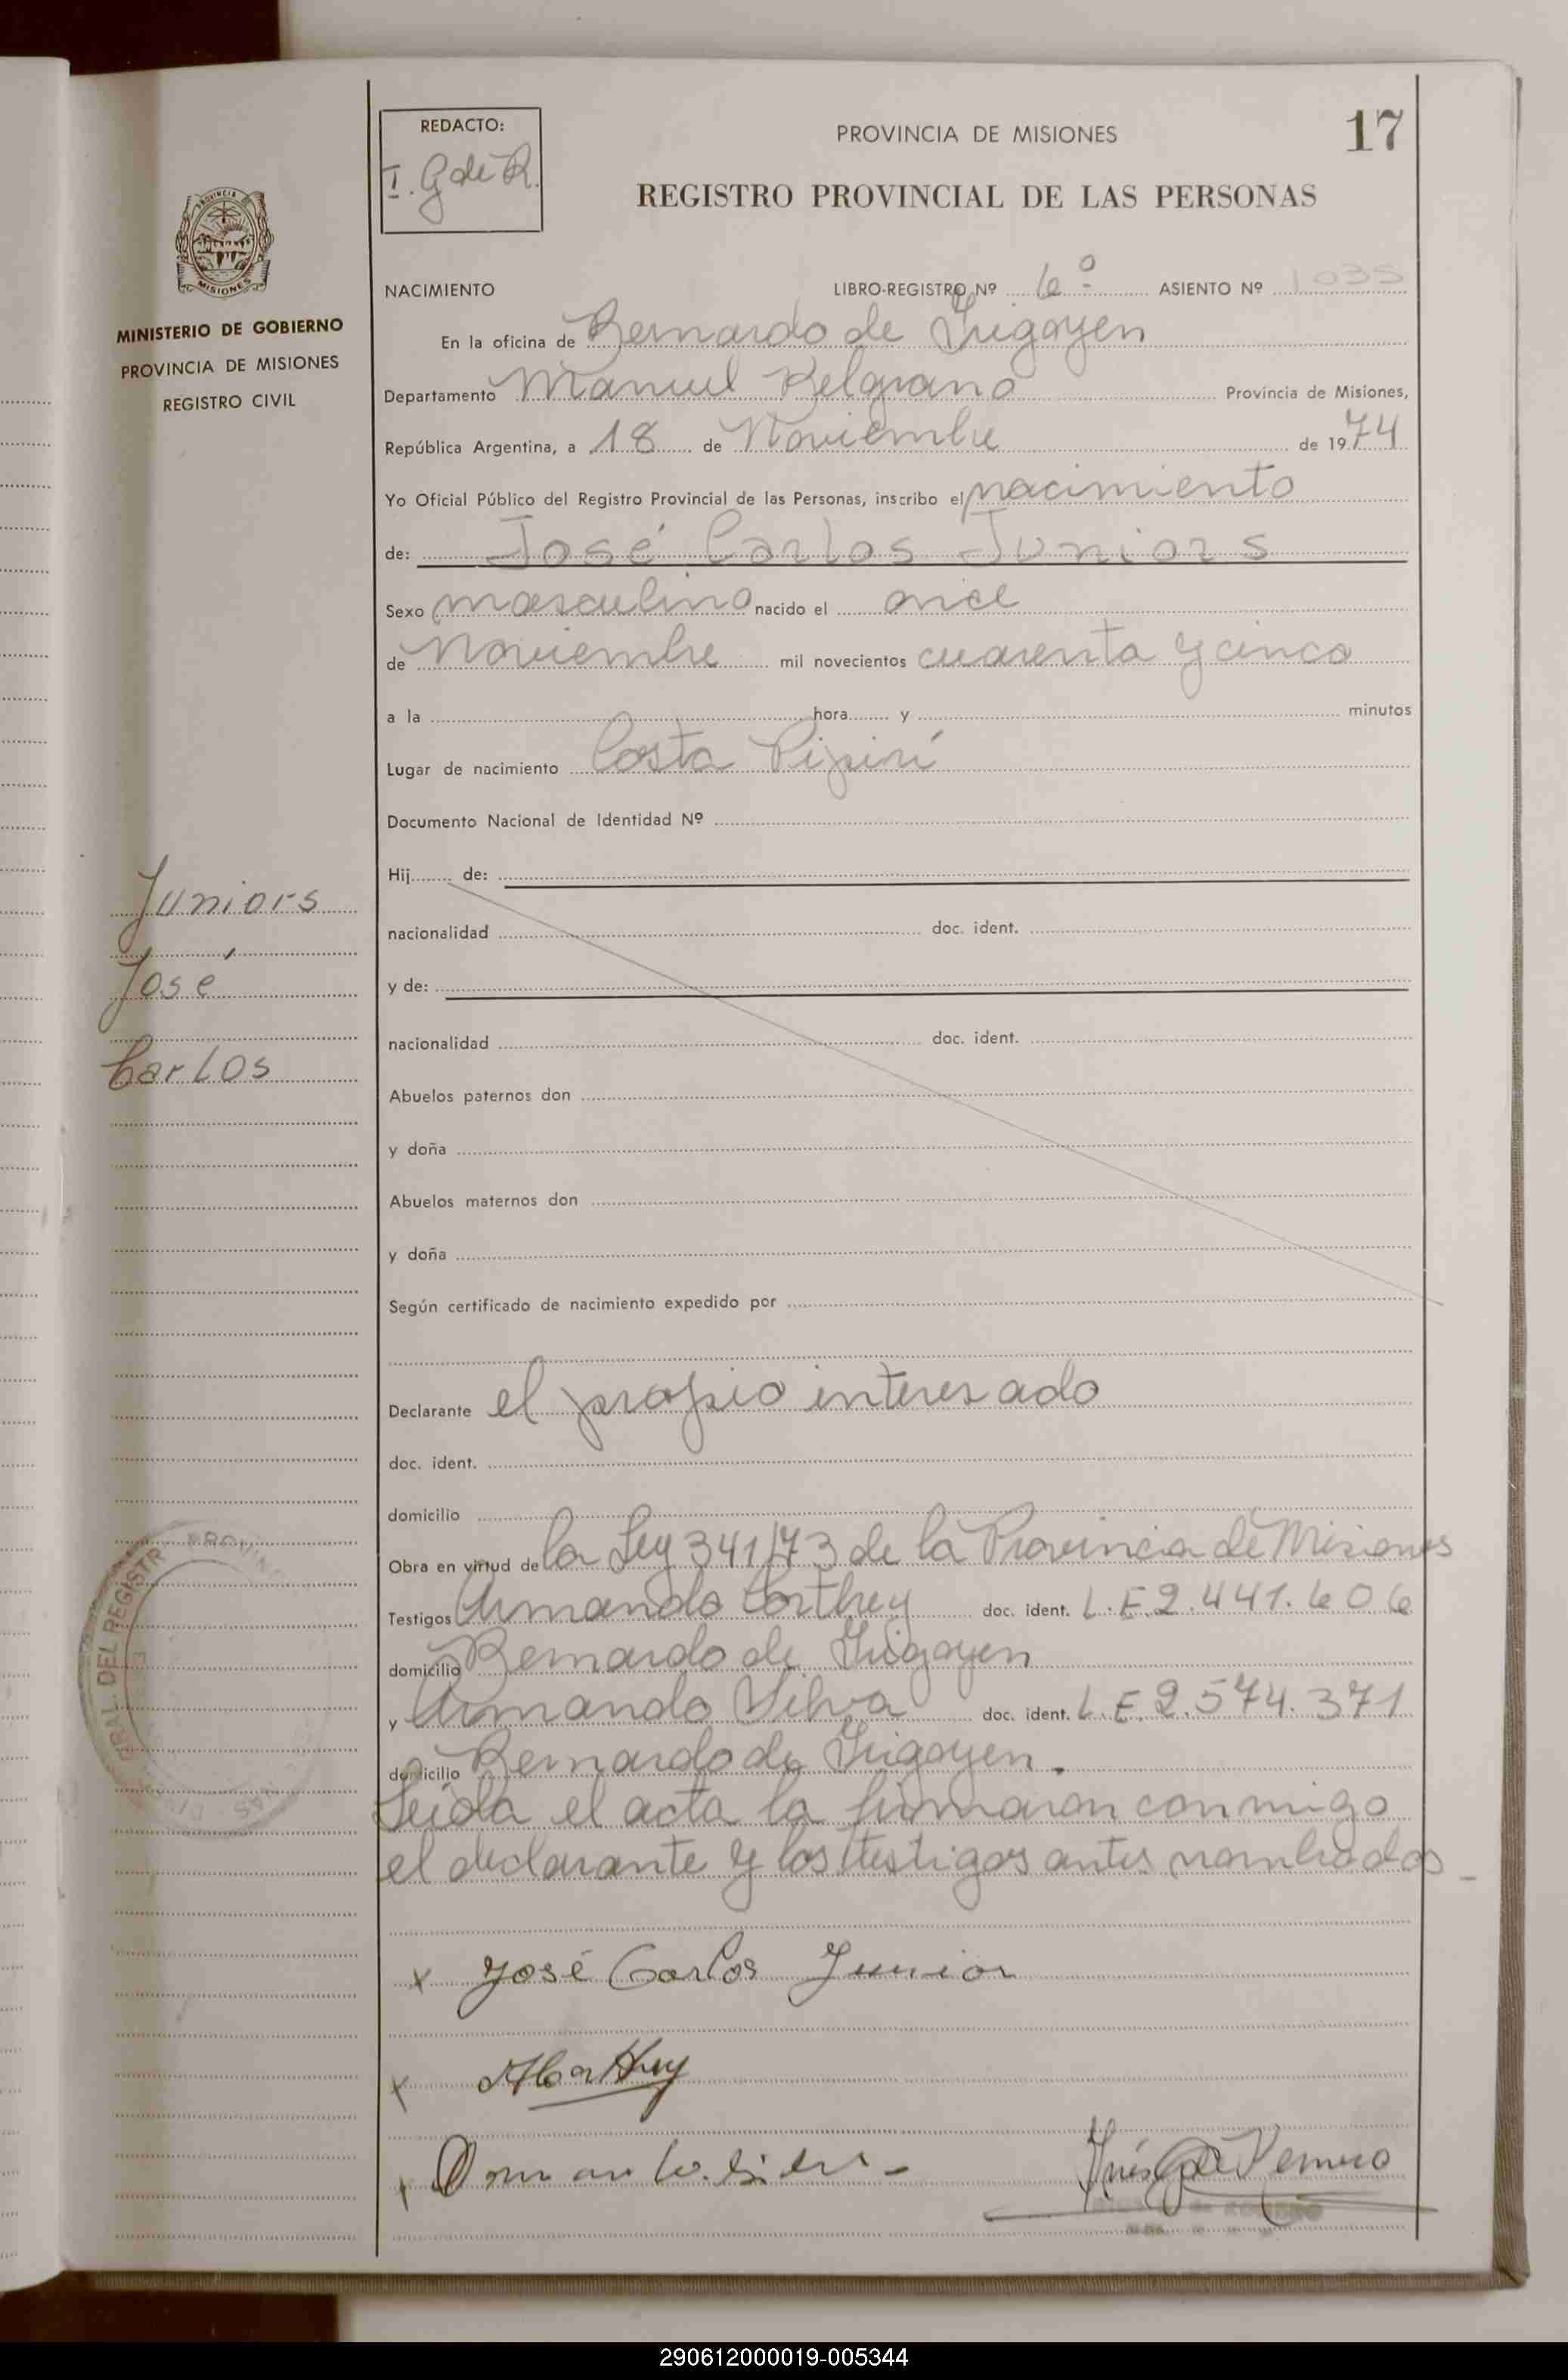 REDACTO:
I. G de R.
PROVINCIA DE MISIONES
17
REGISTRO PROVINCIAL DE LAS PERSONAS
PROVINCIA
MISIONES
MINISTERIO DE GOBIERNO
PROVINCIA DE MISIONES
REGISTRO CIVIL
NACIMIENTO LIBRO-REGISTRO Nº 6º- ASIENTO Nº 1035
En la oficina de Bernardo de Irigoyen
Departamento Manuel Belgrano Provincia de Misiones,
República Argentina, a 18 de Noviembre de 1974
Yo Oficial Público del Registro Provincial de las Personas, inscribo el nacimiento
de: José Carlos Juniors
Sexo masculino nacido el once
de Noviembre mil novecientos cuarenta y cinco
a la hora y minutos
Lugar de nacimiento Costa Pipirí
Documento Nacional de Identidad Nº
Hij de:
Juniors
nacionalidad doc. ident.
José
y de:
nacionalidad doc. ident.
Carlos
Abuelos paternos don
y doña
Abuelos maternos don
y doña
Según certificado de nacimiento expedido por
Declarante el propio interesado
doc. ident.
domicilio
Obra en virtud de la Ley 341/73 de la Provincia de Misiones
Testigos Armando Corthey doc. ident. L.E.2.441.606
domicilio Bernardo de Irigoyen
y Armando Silva doc. ident. L.E.2.574.371
domicilio Bernardo de Irigoyen.
GRAL. DEL REGISTR PROVIN
Leida el acta la firmaron conmigo
el declarante y los testigos antes nombrados-
x José Carlos Junior
x
x
290612000019-005344